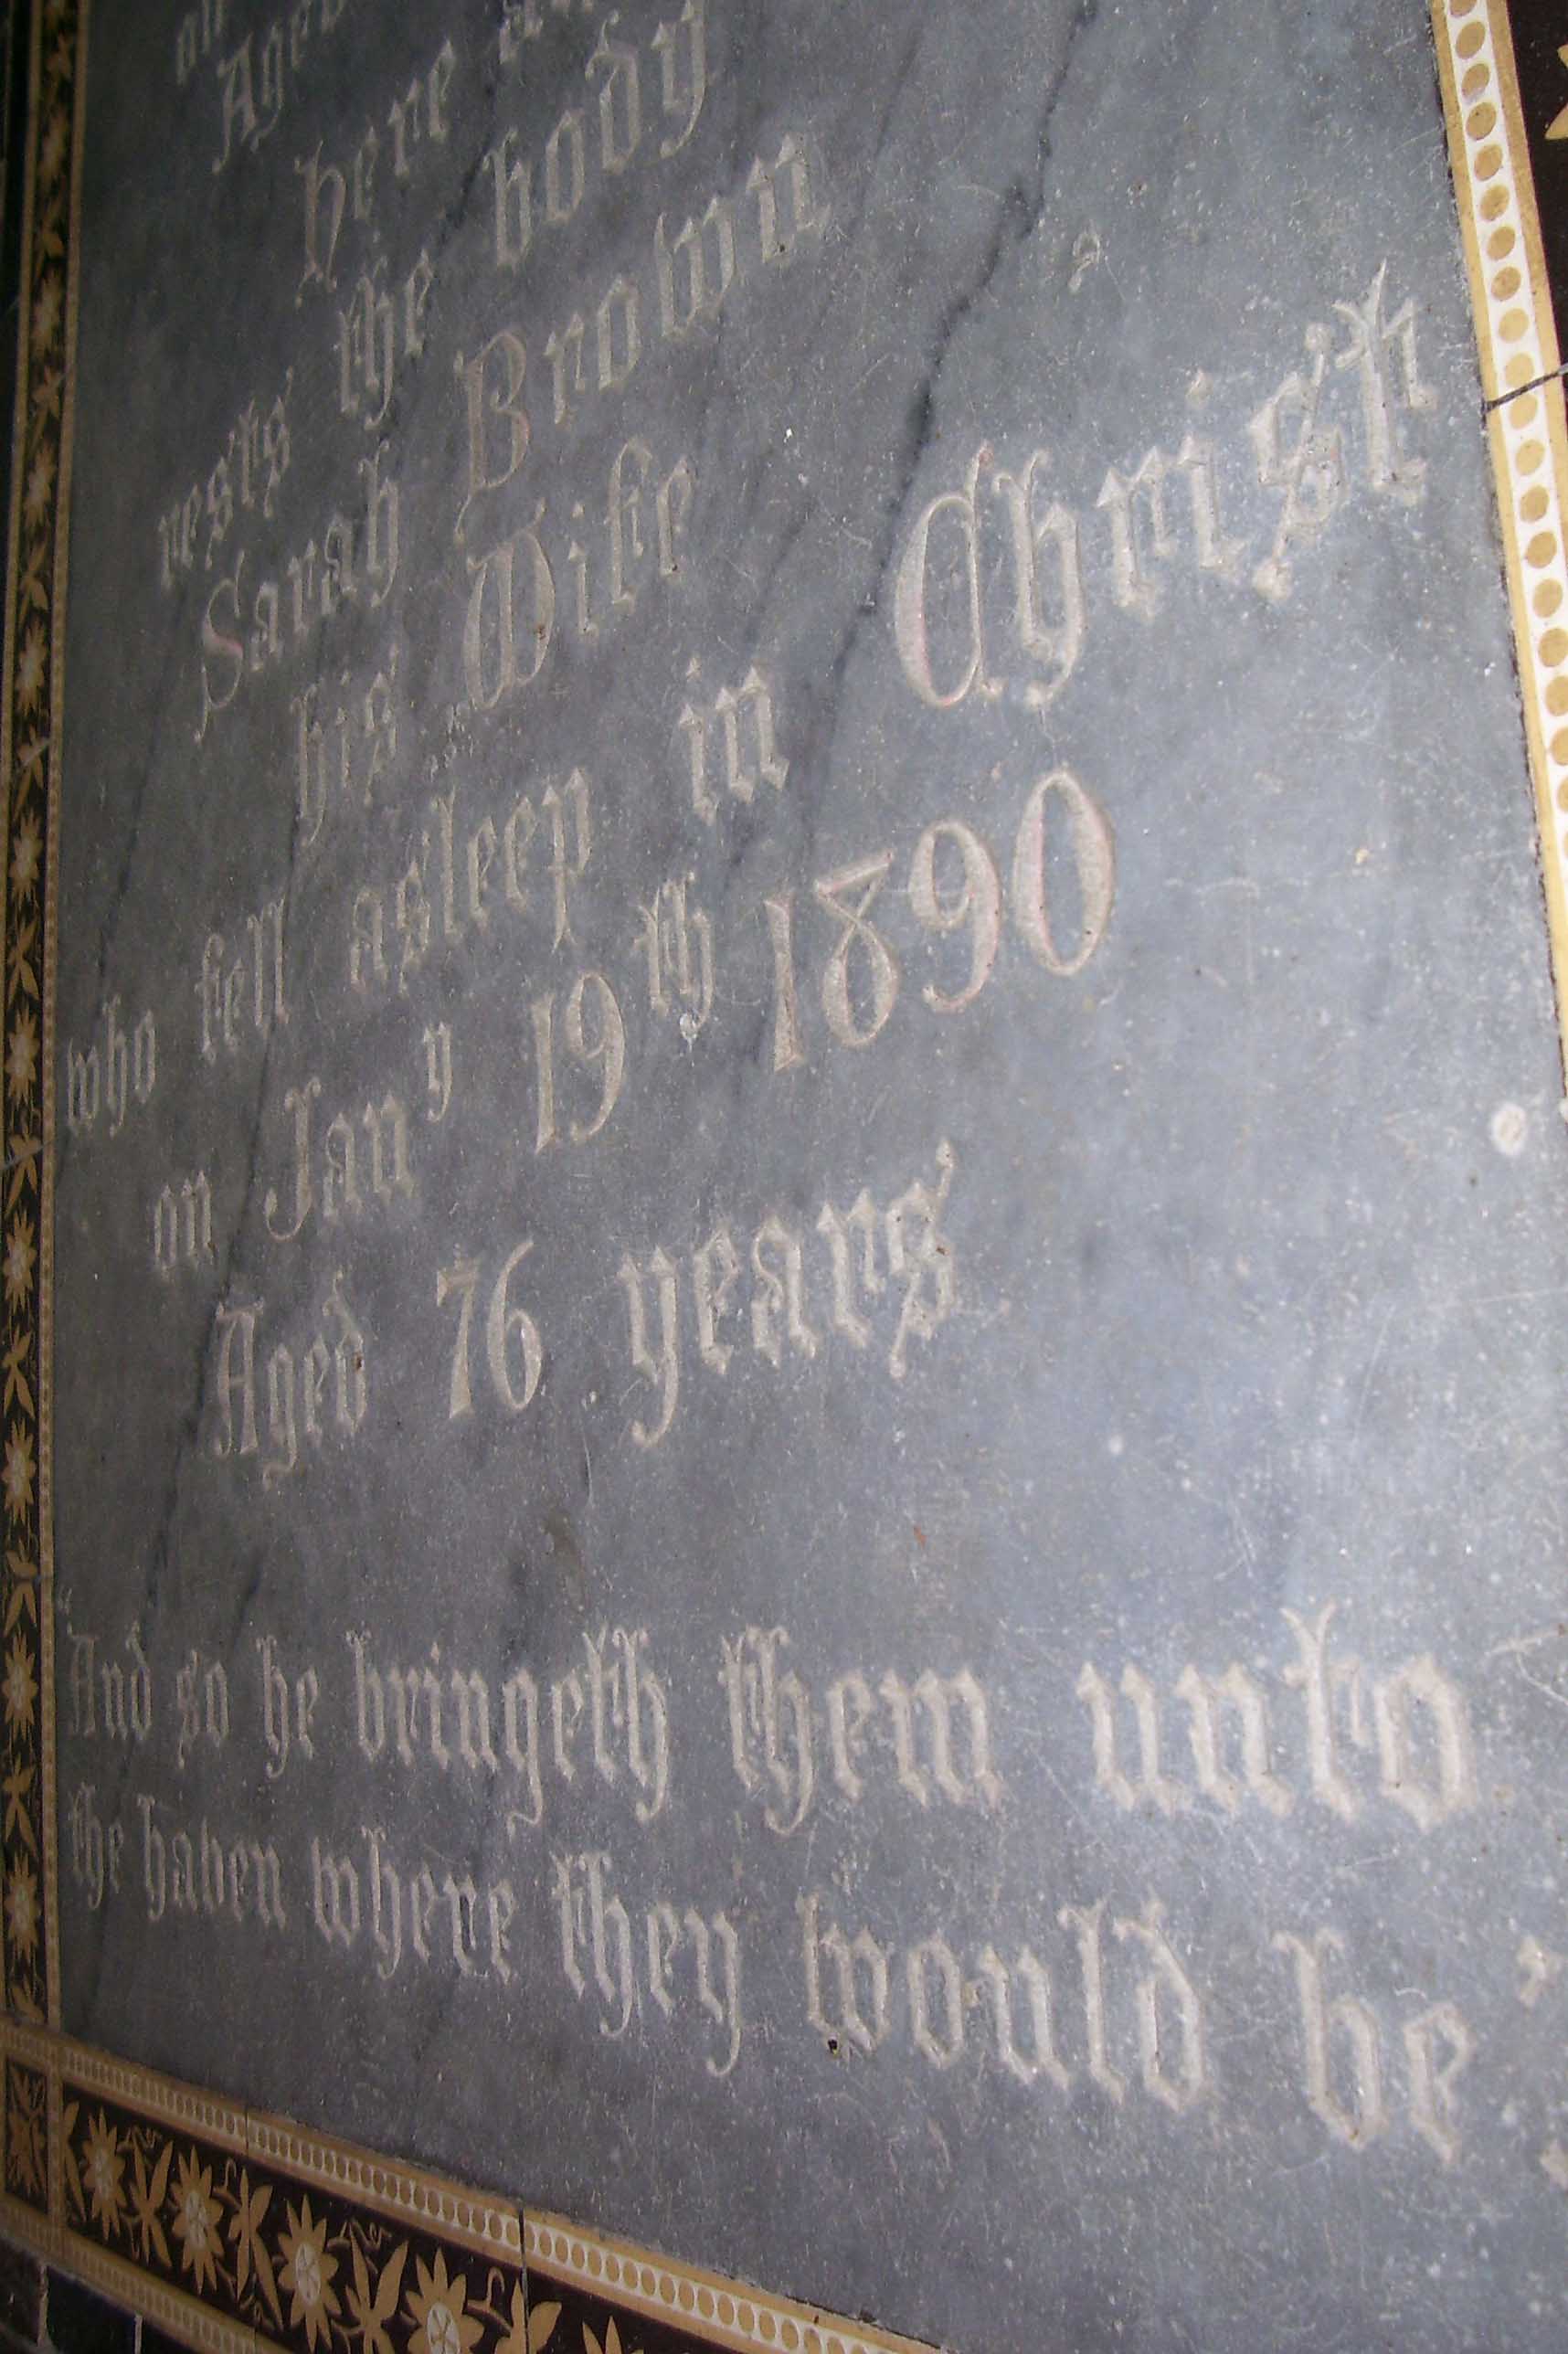 Aged
here
rests the body
Sarah Brown
his Wife
who fell asleep in Christ
on Jany 19th 1890
Aged 76 years
"And so he bringeth them unto
the haven where they would be"